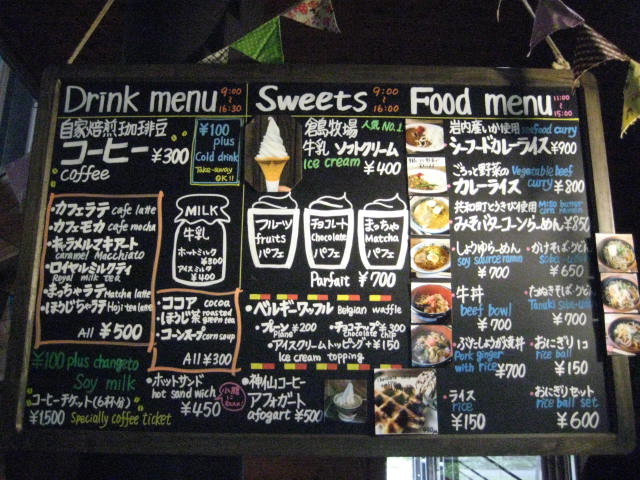 Drink menu 9:00 ~ 16:30
自家焙煎珈琲豆
コーヒー ¥300
coffee
¥100
plus
Cold drink
Take-away
OK!!
・カフェラテ cafe latte
・カフェモカ cafe mocha
・キャラメルマキアート
caramel Macchiato
・ロイヤルミルクティ
Royal milk tea
・まっちゃラテ Matcha latte
・ほうじちゃラテ Hoji tea latte
All ¥500
MILK
牛乳
ホットミルク
¥300
アイスミルク
¥400
・ココア cocoa
・ほうじ茶 roasted green tea
・コーンスープ corn soup
All ¥300
¥100 plus change to
Soy milk
・コーヒーチケット(6杯分)
¥1500 Specially coffee ticket
・ホットサンド
hot sandwich
¥450
Sweets 9:00 ~ 16:00
倉島牧場 人気 No.1
牛乳 ソフトクリーム
Ice cream ¥400
フルーツ
fruits
パフェ
チョコレート
Chocolate
パフェ
まっちゃ
Matcha
パフェ
Parfait ¥700
・ベルギーワッフル Belgian waffle
・プレーン ¥200
Plane
・チョコチップ ¥300
Chocolate chip
・アイスクリームトッピング + ¥150
Ice cream topping
・神山コーヒー
アフォガート
afogart ¥500
Food menu 11:00 ~ 15:00
岩内産いか使用 seafood curry
シーフードカレーライス ¥900
ごろっと野菜の Vegetable beef
カレーライス curry ¥800
共和町とうきび使用 Miso butter
corn ramen
みそバターコーンらーめん ¥850
・しょうゆらーめん
Soy source ramen
¥700
・かけそば・うどん
Soba udon
¥650
・牛丼
beef bowl
¥700
・たぬきそば・うどん
Tanuki soba-udon
¥700
・ぶたしょうが焼丼
Pork ginger
with rice ¥700
・おにぎり1コ
rice ball
¥150
・ライス
rice
¥150
・おにぎりセット
rice ball set
¥600